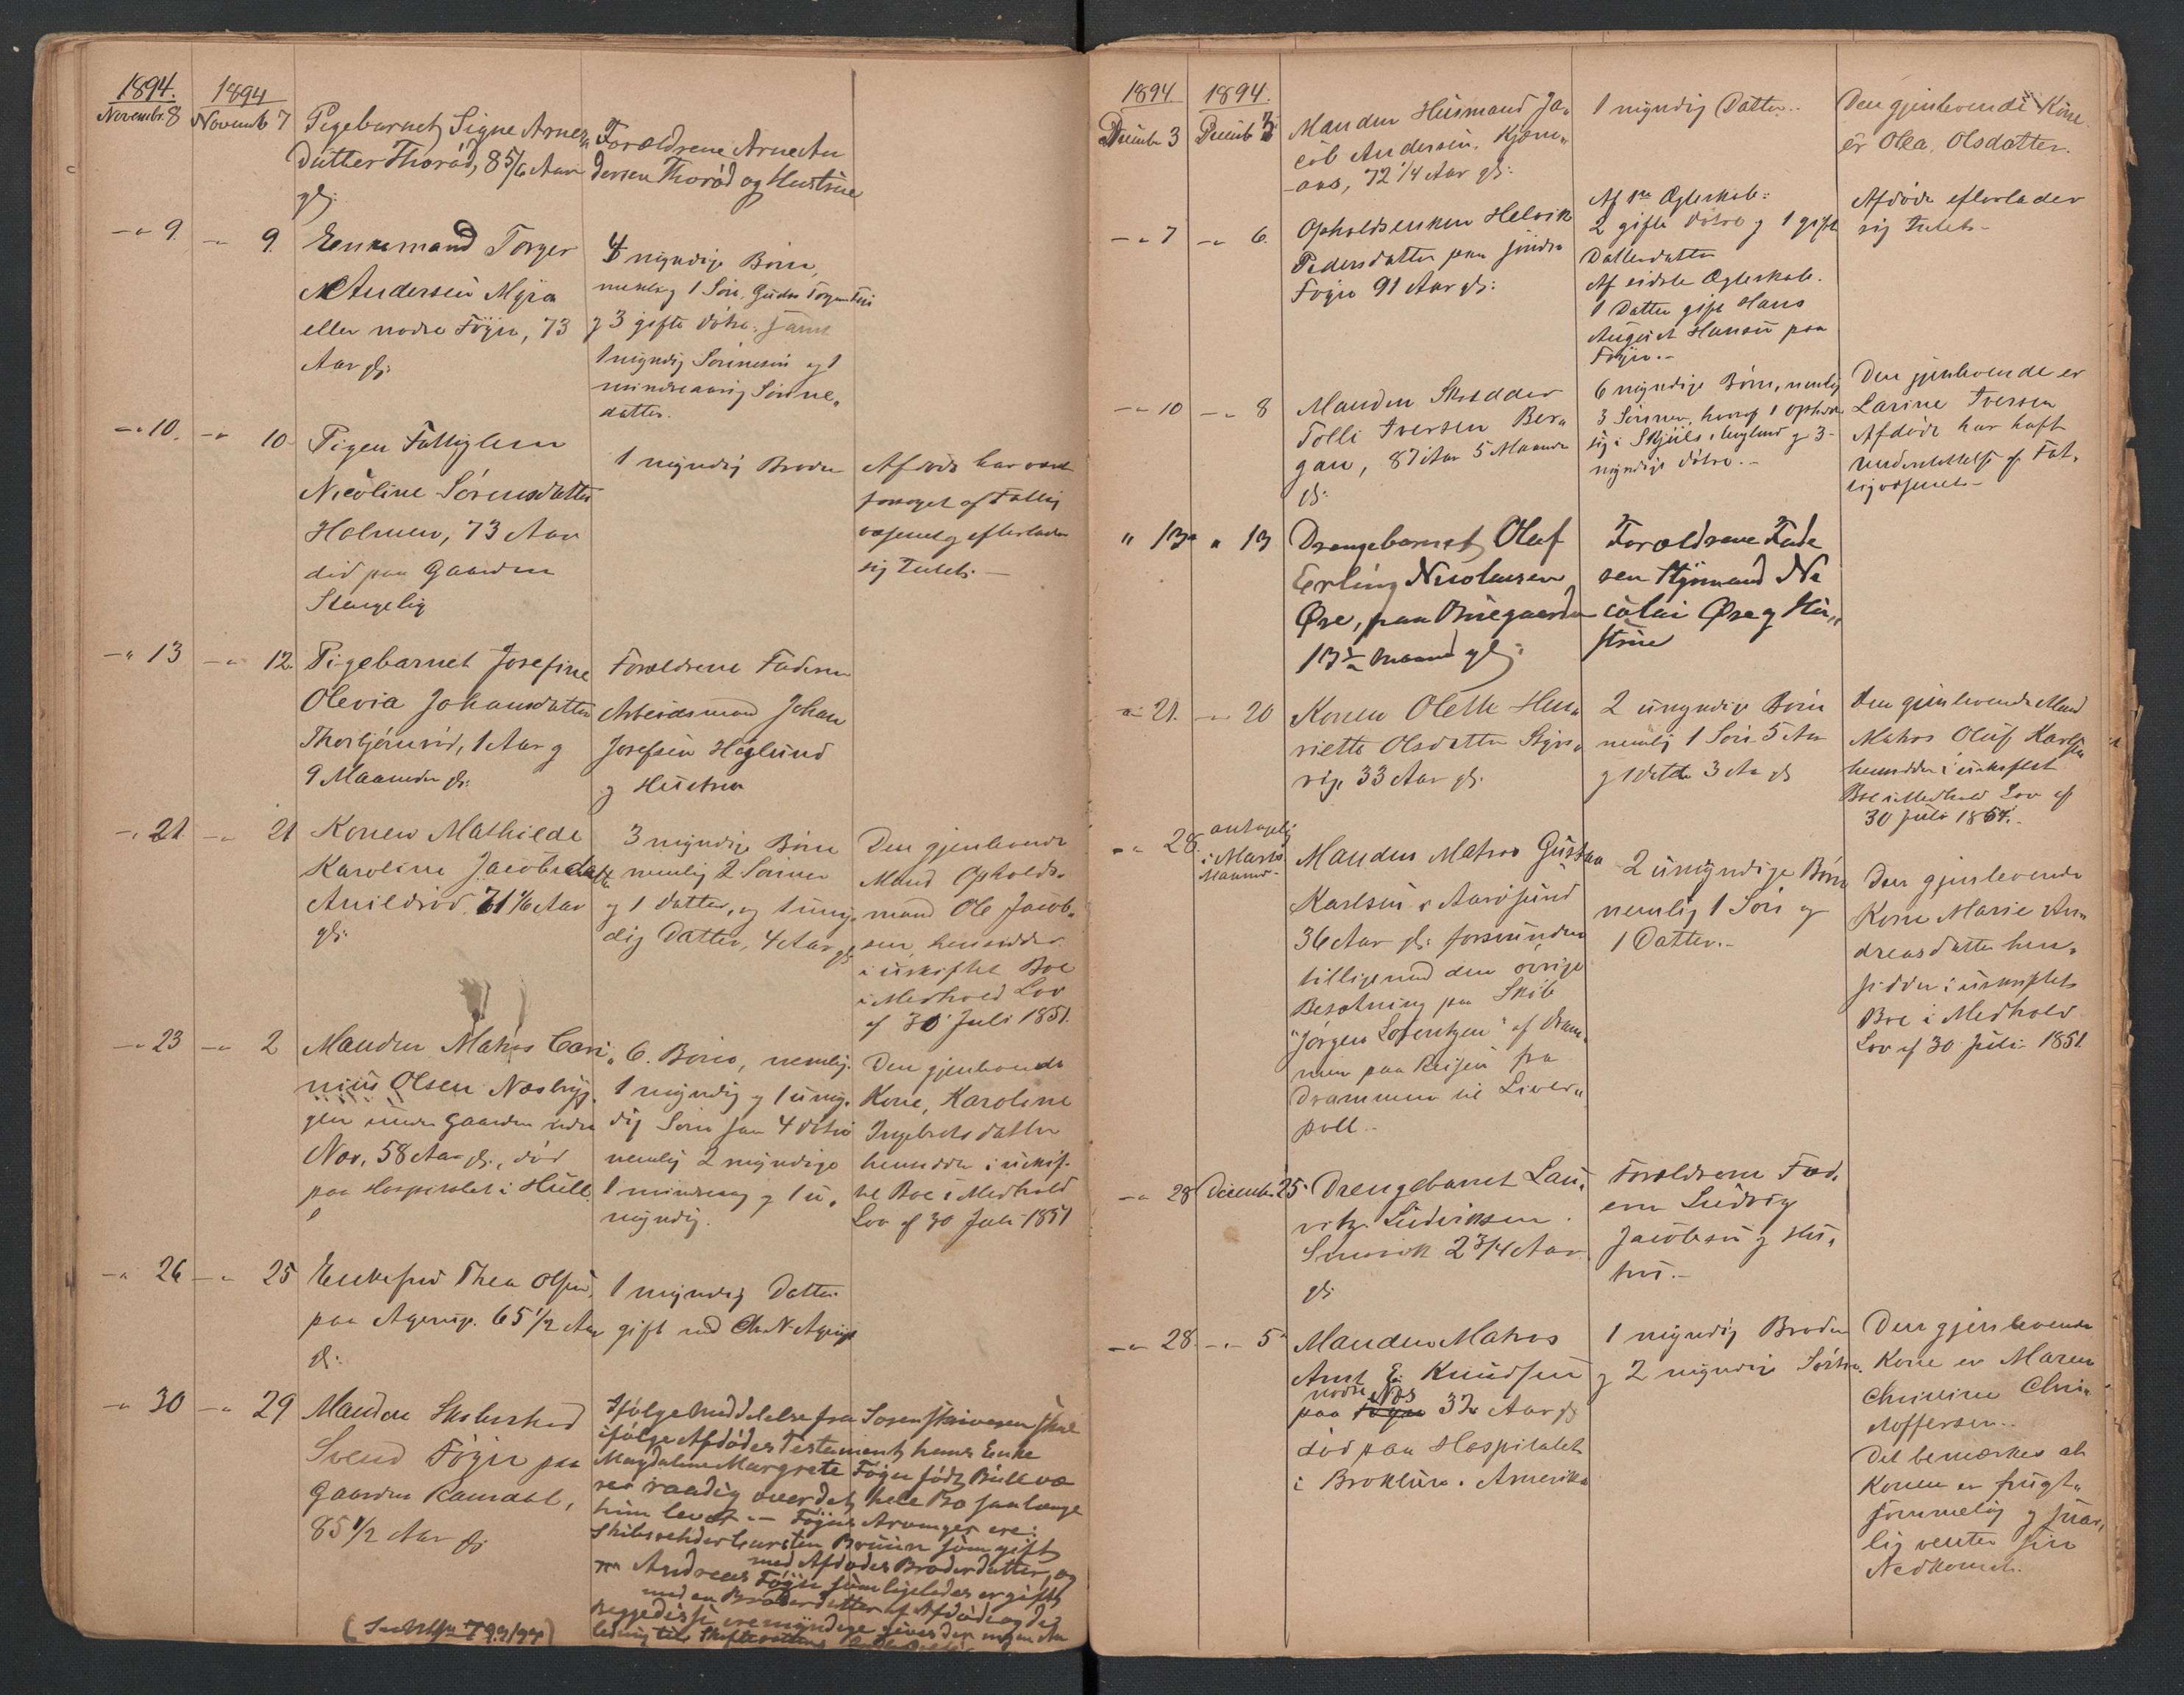 1894.
Novembr. 8
1894
Novemb 7
Pigebarnet Signe Arnes
datter Thorød, 8 5/6 Aar
gl:
Forældrene Arne An
dersen Thorød og Hustrue
-"- 9.
-"- 9.
Enkemand Torger
Andersen Myra
eller nodre Föyn, 73
Aar gl:
4 myndige Börn,
nemlig 1 Sön
og 3 gifte døtre, samt
1 myndig Sönnesön og 1
mindreaarig Sönne„
datter.
-"- 10.
-"- 10.
Pigen Fattiglem
Nicoline Sörensdatter
Holmen, 73 Aar
död paa Gaarden
Stangeby
1 myndig Broder
Afdöde har været
forsörget af Fattig
væsenet og efterlader
sig Intet. —
-"- 13
-"- 12.
Pigebarnet Josefine
Olevia Johansdatter
Thorbjörnröd, 1 Aar og
9 Maaneder gl:
Forældrene Faderen
Arbeidsmand Johan
Josefsen Höglund
og Hustru
-"- 21.
-"- 21
Konen Mathilde
Karoline Jacobsdatter
Anildröd 61 1/6 Aar
gl:
3 myndige Börn
nemlig 2 Sönner
og 1 datter, og 1 umyn
dig Datter, 4 Aar gl:
Den gjenlevende
Mand Opholds-
mand Ole Jacob„
sen, hensidder
i uskiftet Boe
i Medhold Lov
af 30 Juli 1851.
-"- 23
-"- 2
Manden Matros Cari„
nius Olsen Nesbryg
gen under Gaarden
Nes, 58 Aar gl:, död
paa Hospitalet i Hull
6. Börn, nemlig.
1 myndig og 1 umyn.
dig Sön samt 4 døtre
nemlig 2 myndige
1 mindreaarig og 1 u„
myndig.
Den gjenlevende
Kone, Karoline
Ingebretsdatter
hensidder i uskif-
tet Boe i Medhold
Lov af 30 Juli 1851
-"- 26
-"- 25
Enkefru Thea Olsen,
paa Agerup. 65 1/2 Aar
gl:
1 myndig Datter
gift med Chr. N. Agerup
-"- 30
-"- 29
Manden Skibsrhed
Svend Föyn paa
Gaarden Ramdal,
85 1/2 Aar gl:
Ifölge Meddelelse fra Sorenskriveren skal
ifölge Afdödes Testament, hans Enke
Magdalene Margrete Föyn född Bull væ
re raadig over det hele Bo saalænge
hun lever. — Föyns Arvinger ere:
Skibsrehder Carsten Bruun som gift
med Afdödes Broderdatter, og
Andreas Föyn som ligeledes er gift
med en Broderdatter af Afdöde og da
Begge disse ere myndige gives der ingen An
ledning til Skifterettens
1894
Decemb 3
1894.
Decemb 3
Manden Husmand Ja„
cob Andersen, Kjøn„
aas, 72 1/4 Aar gl:
1 myndig Datter..
Den gjenlevende Kone
er Olea Olsdatter.
-"- 7
-"- 6.
Opholdsenken Helvik
Pedersdatter paa söndre
Föyn 91 Aar gl:
Af 1ste Ægteskab:
2 gifte døtre og 1 gift
Datterdatter
Af sidste Ægteskab.
1 Datter gift Hans
August Hansen paa
Föyn. -
Afdöde efterlader
sig Intet. -
-"- 10
-"- 8
Manden Skrædder
Tolli Iversen Ber„
gan, 87 Aar 5 Maaneder
gl:
6 myndige Börn, nemlig
3 Sönner, hvoraf 1 opholder
sig i Skjuls, England og 3
myndige døtre. -
Den gjenlevende er
Larine Iversen
Afdöde har haft
Understöttelse af Fat„
tigvæsenet. -
" 13
" 13
Drengebarnet Oluf
Erling Nicolaisen
Øre, paa Bruegaarden
13 1/2 Maaned gl:
Forældrene Fade
ren Styrmand Ni
colai Øre og Hu„
strue
-"- 21.
-"- 20
Konen Olette Hen„
riette Olsdatter Styrs„
vig, 33 Aar gl:
2 umyndige Börn
nemlig 1 Sön 5 Aar
og 1 datter 3 Aar gl
Den gjenlevende Mand
Matros Oluf Karlsen
hensidder i uskiftet
Boe i Medhold Lov af
30 Juli 1851.
-"- 28.
antagelig
i Marts
Maaned.
Manden Matros Gustav
Karlsen, Aarösund
36 Aar gl: forsvunden
tilligemed den övrige
Besætning paa Skib
"Jörgen Lorentzen" af Dram„
men paa Reisen fra
Drammen til Liver„
pool..
2 umyndige Börn
nemlig 1 Sön og
1 Datter.-
Den gjenlevende
Kone Marie An„
dreasdatter hen„
sidder i uskiftet
Boe i Medhold
Lov af 30 Juli 1851.
-"- 28
Decemb. 25.
Drengebarnet Lau„
ritz Ludviksen
Snevik 2 3/4 Aar.
gl:
Forældrene Fad„
eren Ludvig
Jacobsen og Hu„
stru.-
-"- 28.
-"- 5
Manden Matros
Arnt E. Knudsen
nodre Nes
paa Föyn 32 Aar gl:
död paa Hospitalet
i Broklün. Amerika
1 myndig Broder
og 2 myndige Söstre.
Den gjenlevende
Kone er Maren
Christine Chri„
stoffersen..
Det bemærkes at
Konen er frugt„
sommelig og snar„
lig venter sin
Nedkomst.